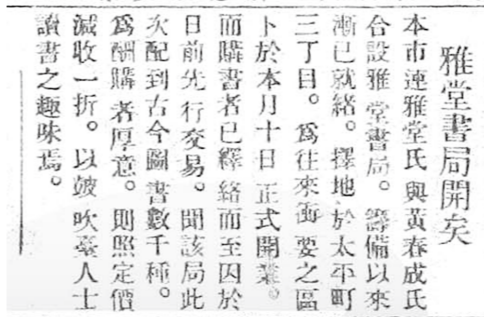 雅堂書局開矣
本市連雅堂氏與黃春成氏
合設雅堂書局。籌備以來
漸已就緒。擇地於太平町
三丁目。爲往來衝要之區
卜於本月十日正式開業。
而購書者已繹絡而至因於
日前先行交易。聞該局此
次配到古今圖書數千種。
爲酬購者厚意。則照定價
減收一折。以皷吹臺人士
讀書之趣味焉。